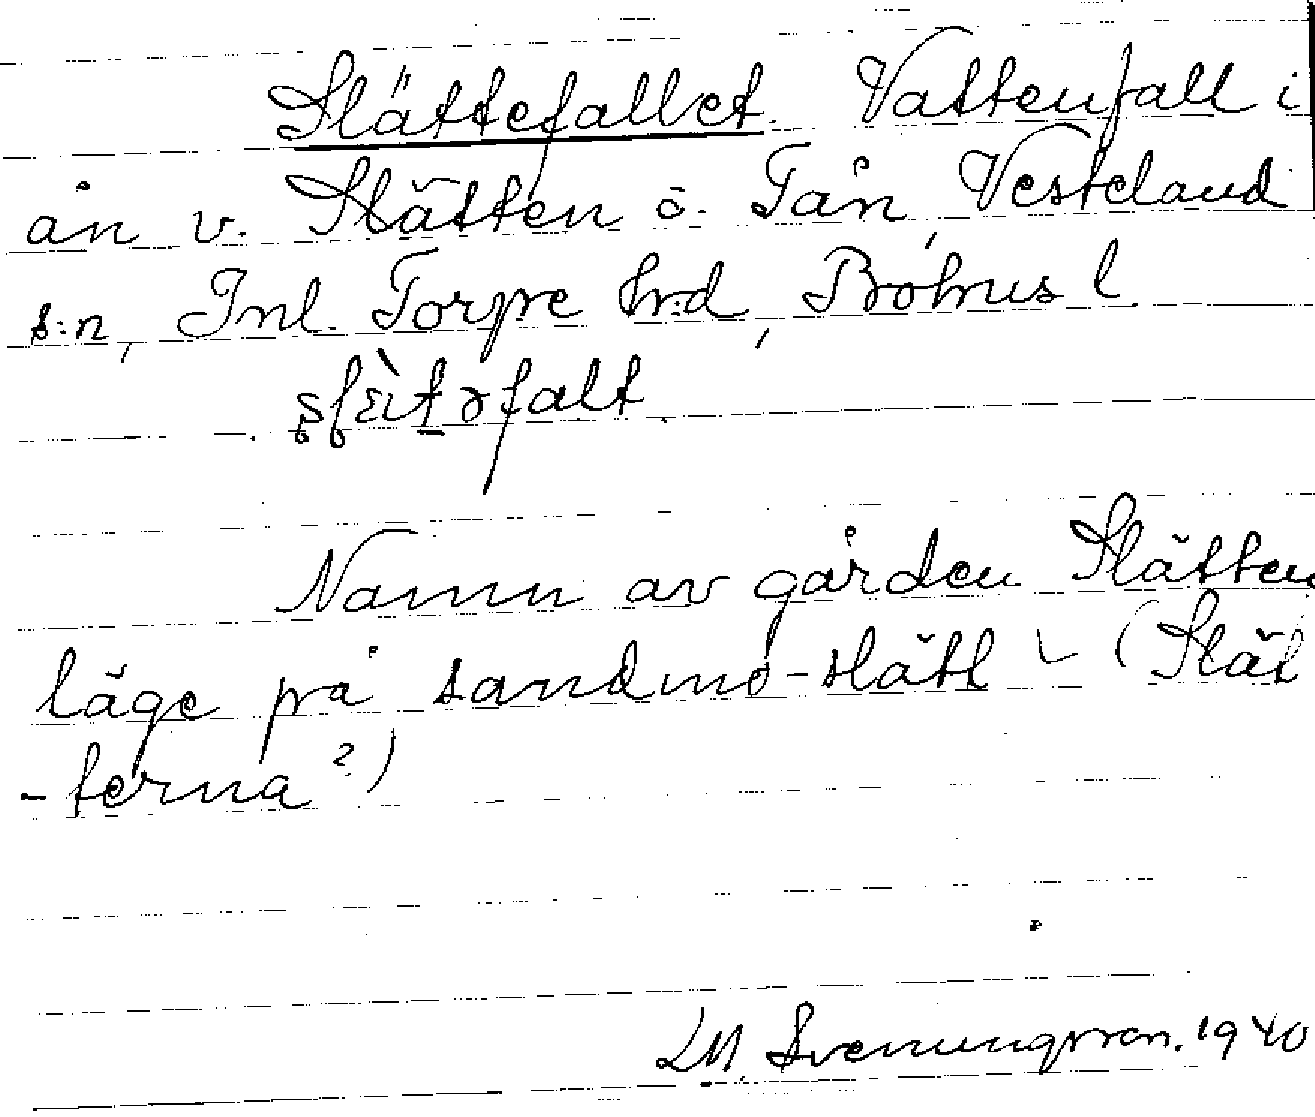 Slättefallet. Vattenfall i
ån v. Slätten ö. Tån, Vesteland
s:n, Inl. Torpe hrd, Bohus l.
Namn av gården Slätten
läge på sandmo-slätt (Slät
-terna?)
LM. Svenungsson. 1940